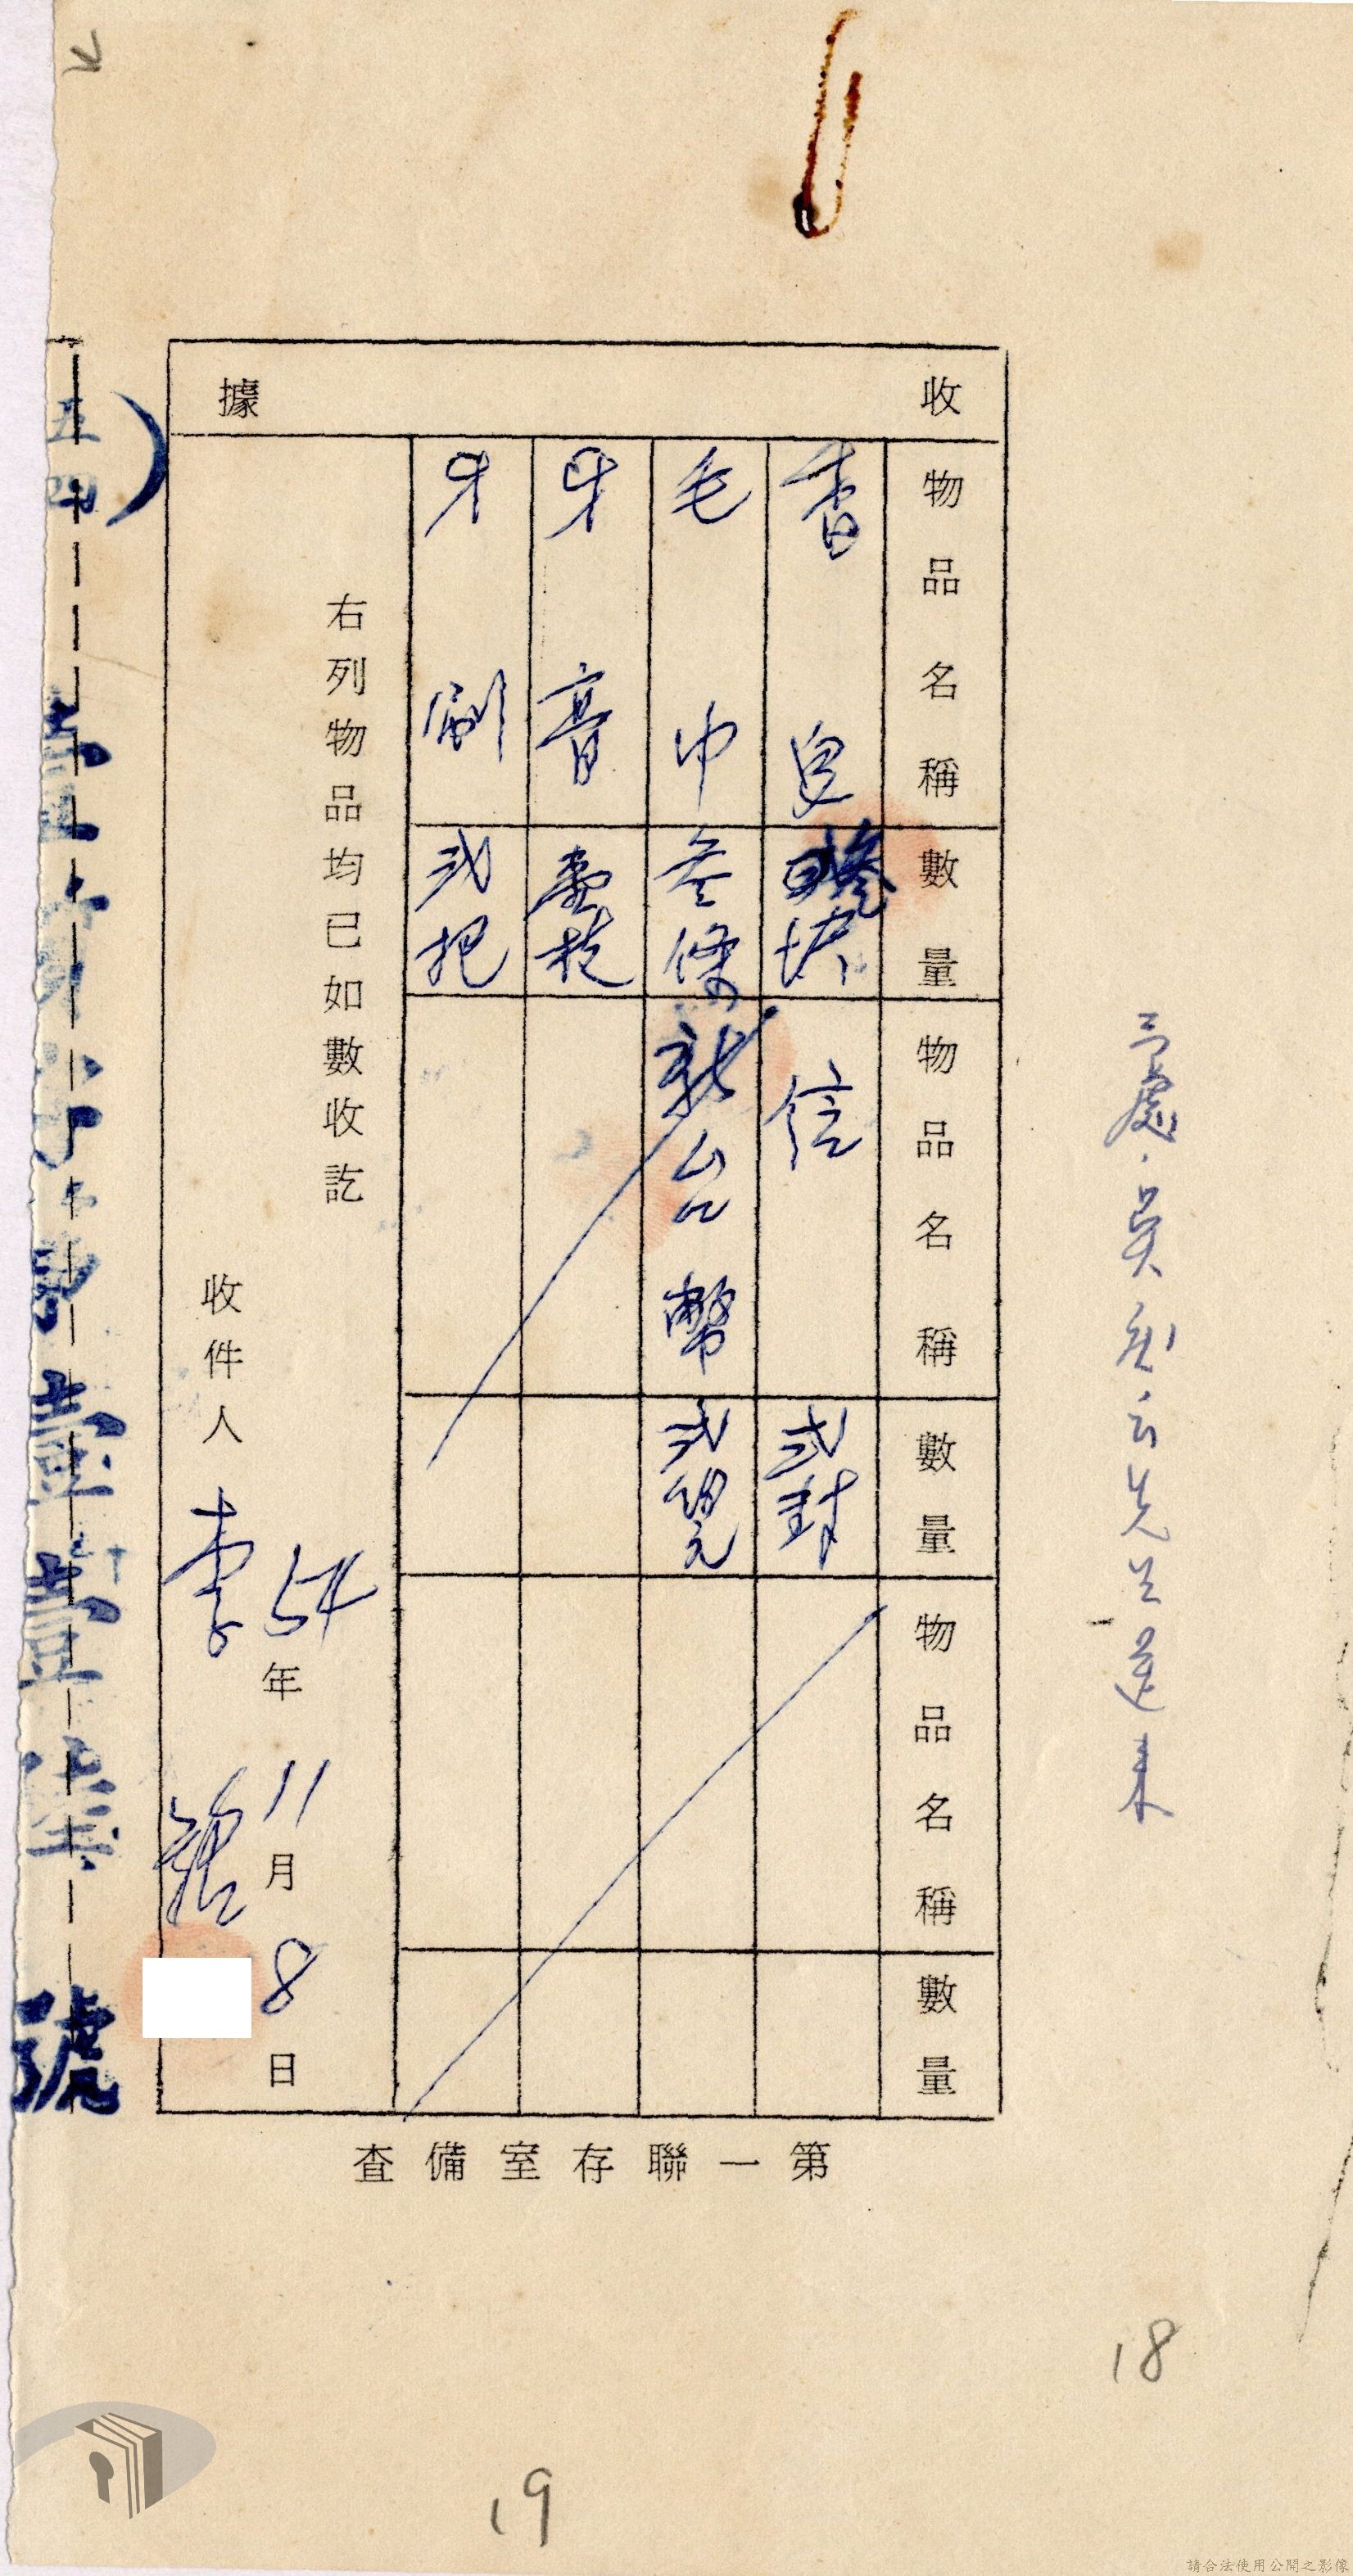 三處
先生送來
收據
物品名稱 數量 物品名稱 數量 物品名稱 數量
香皂 叁塊 信 弍封
毛巾 叁條 新台幣 弍佰元
牙膏 壹枝
牙刷 弍把
右列物品均已如數收訖
54年11月8日
收件人 李
第一聯存室備查
五四)
壹壹
號
18
19
請合法使用公開之影像